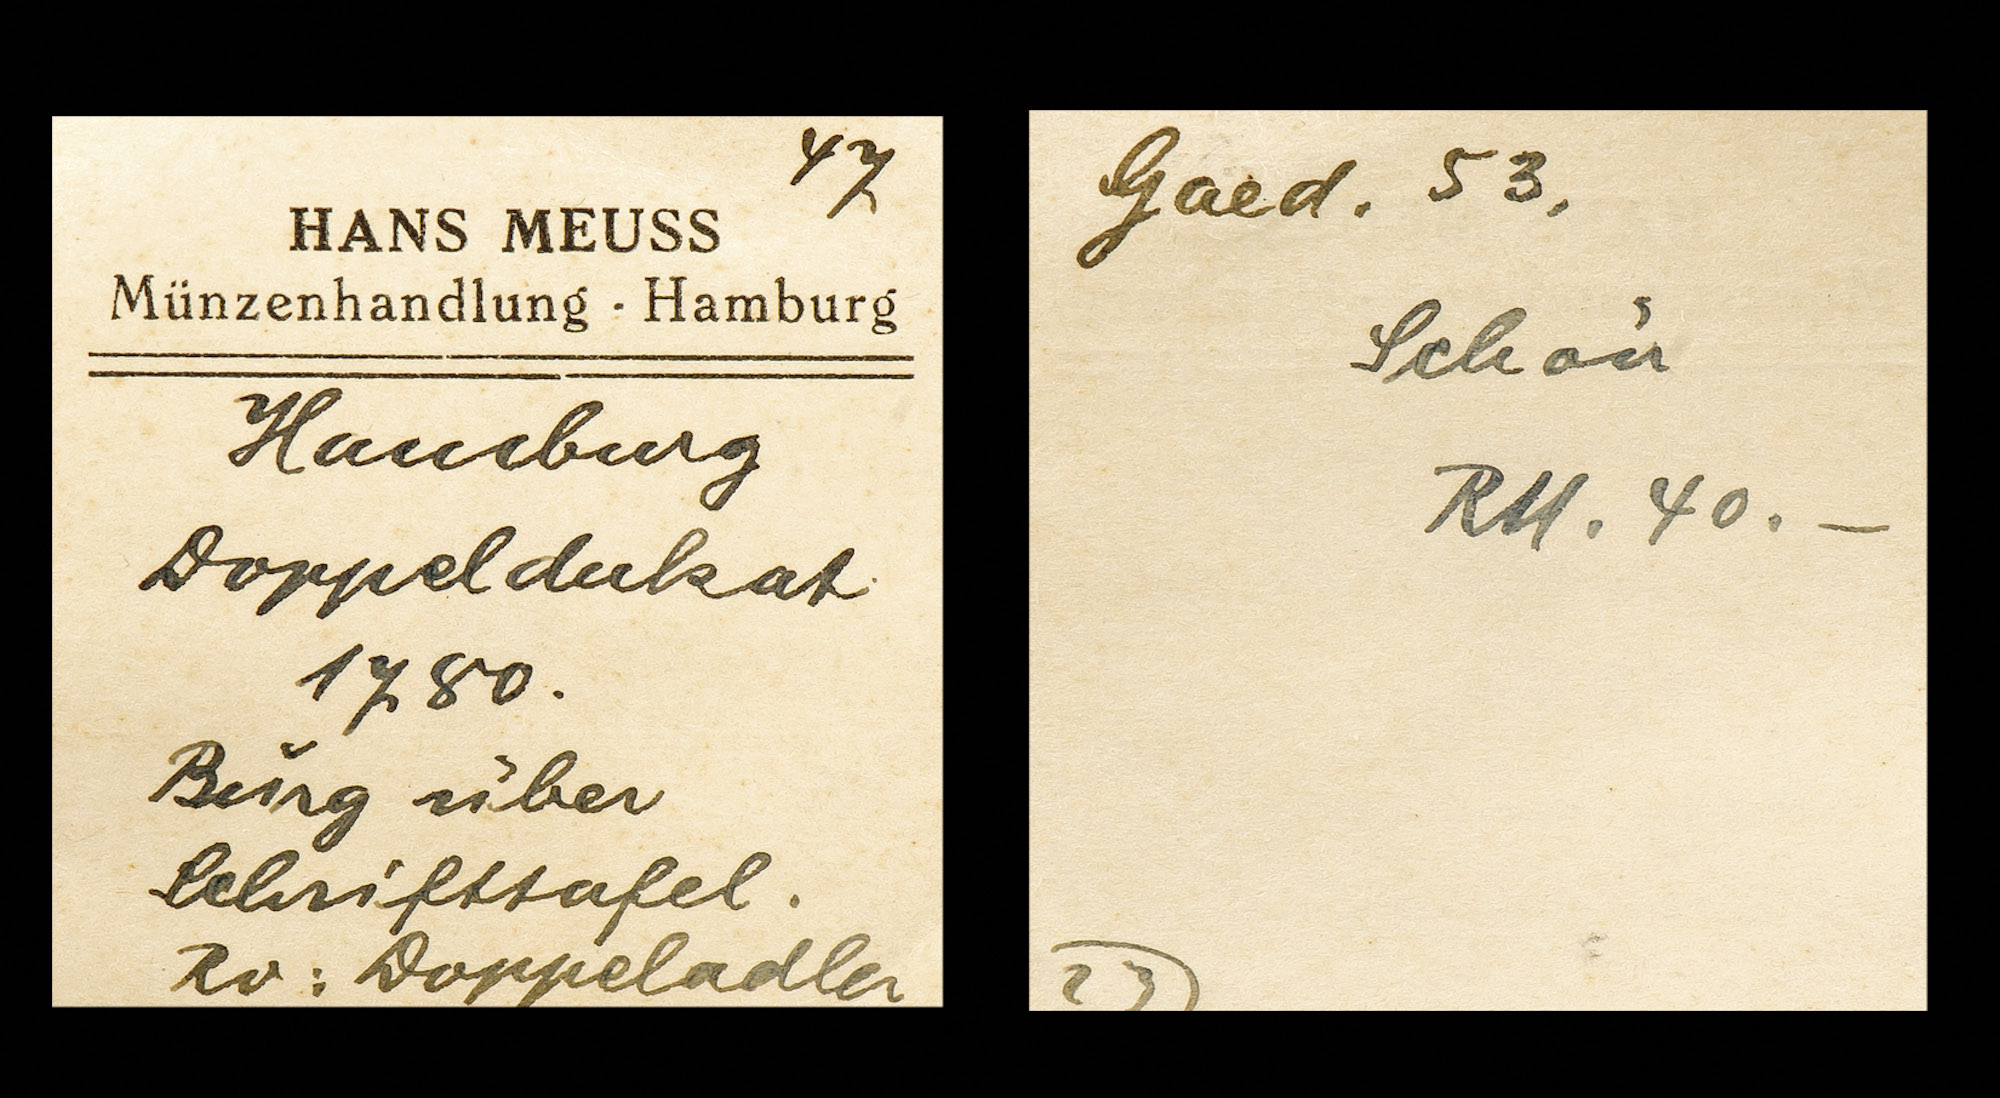 47
HANS MEUSS
Münzenhandlung · Hamburg
Hamburg
Doppeldukat
1780.
Burg über
Schrifttafel.
Rv: Doppeladler
Gaed. 53.
Schön
RM. 40.—
23